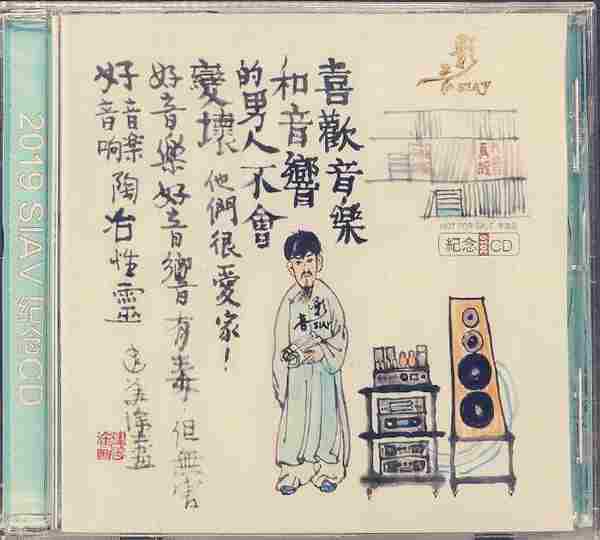 2019 SIAV 紀念CD
影音SIAV
NOT FOR SALE 非賣品
紀念CD
喜歡音樂
和音響
的男人不會
變壞 他們很愛家！
好音樂好音響有毒，但無害
好音樂音响陶冶性靈
影音SIAV